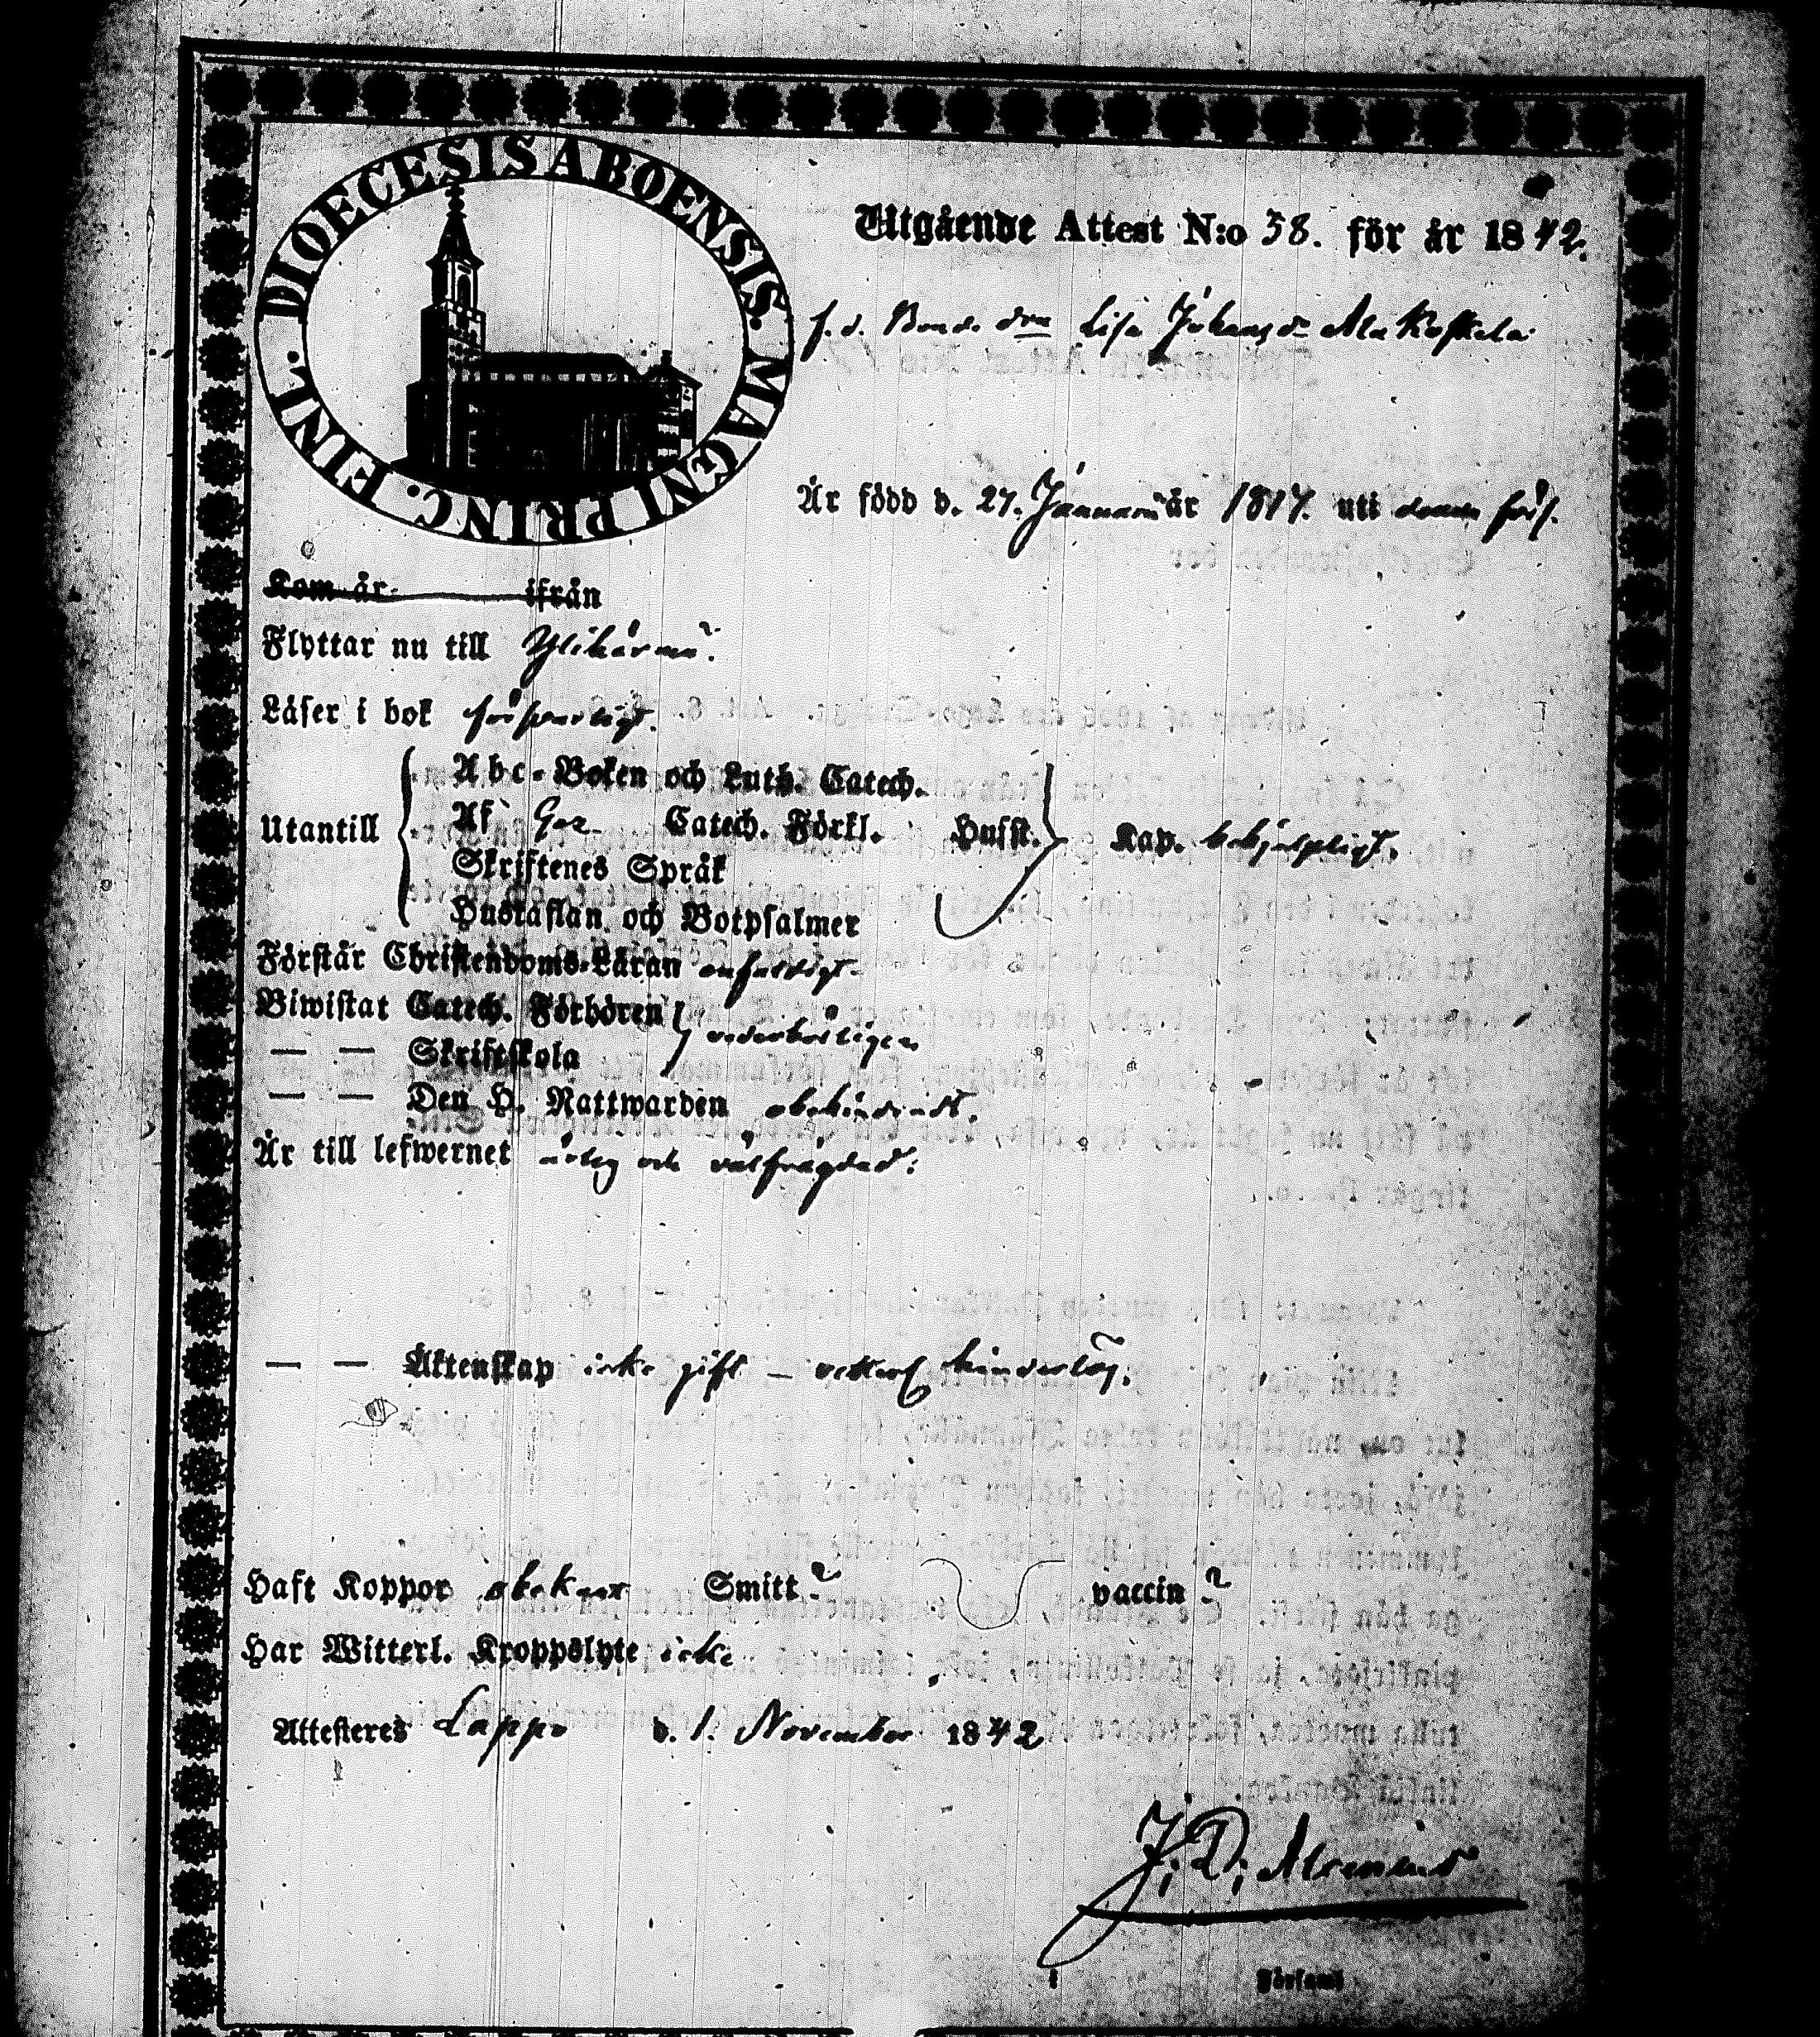 DIOECESIS ABOENSIS. MAGNI PRINC. FINL.
Utgående Attest N:o 58. för år 1842.
f. d. Bond. dra Lisa Johansd. Ala Koskela
Är född d. 27. Januarii år 1817. uti denna förs.
Kom år ifrån
Flyttar nu till Ylihärmä.
Läser i bok försvarligt.
Abc-Boken och Luth. Catech.
Utantill Af Gez. Catech. Förkl. Husst. Kap. behjelpligt.
Skriftenes Språk
Hustaflan och Botpsalmer
Förstår Christendoms-Läran enfaldigt
Biwistat Catech. Förhören
— — Skriftskola vederbörligen
— — Den H. Nattwarden obehindradt.
Är till lefwernet ärlig och välfrägdad.
— — Äktenskap icke gift — hinderslös.
Haft Koppor obekant Smitt ? vaccin ?
Har Witterl. Kroppslyte icke
Attesteres Lappo d. 1. November 1842
J. D. Alcenius
Församl